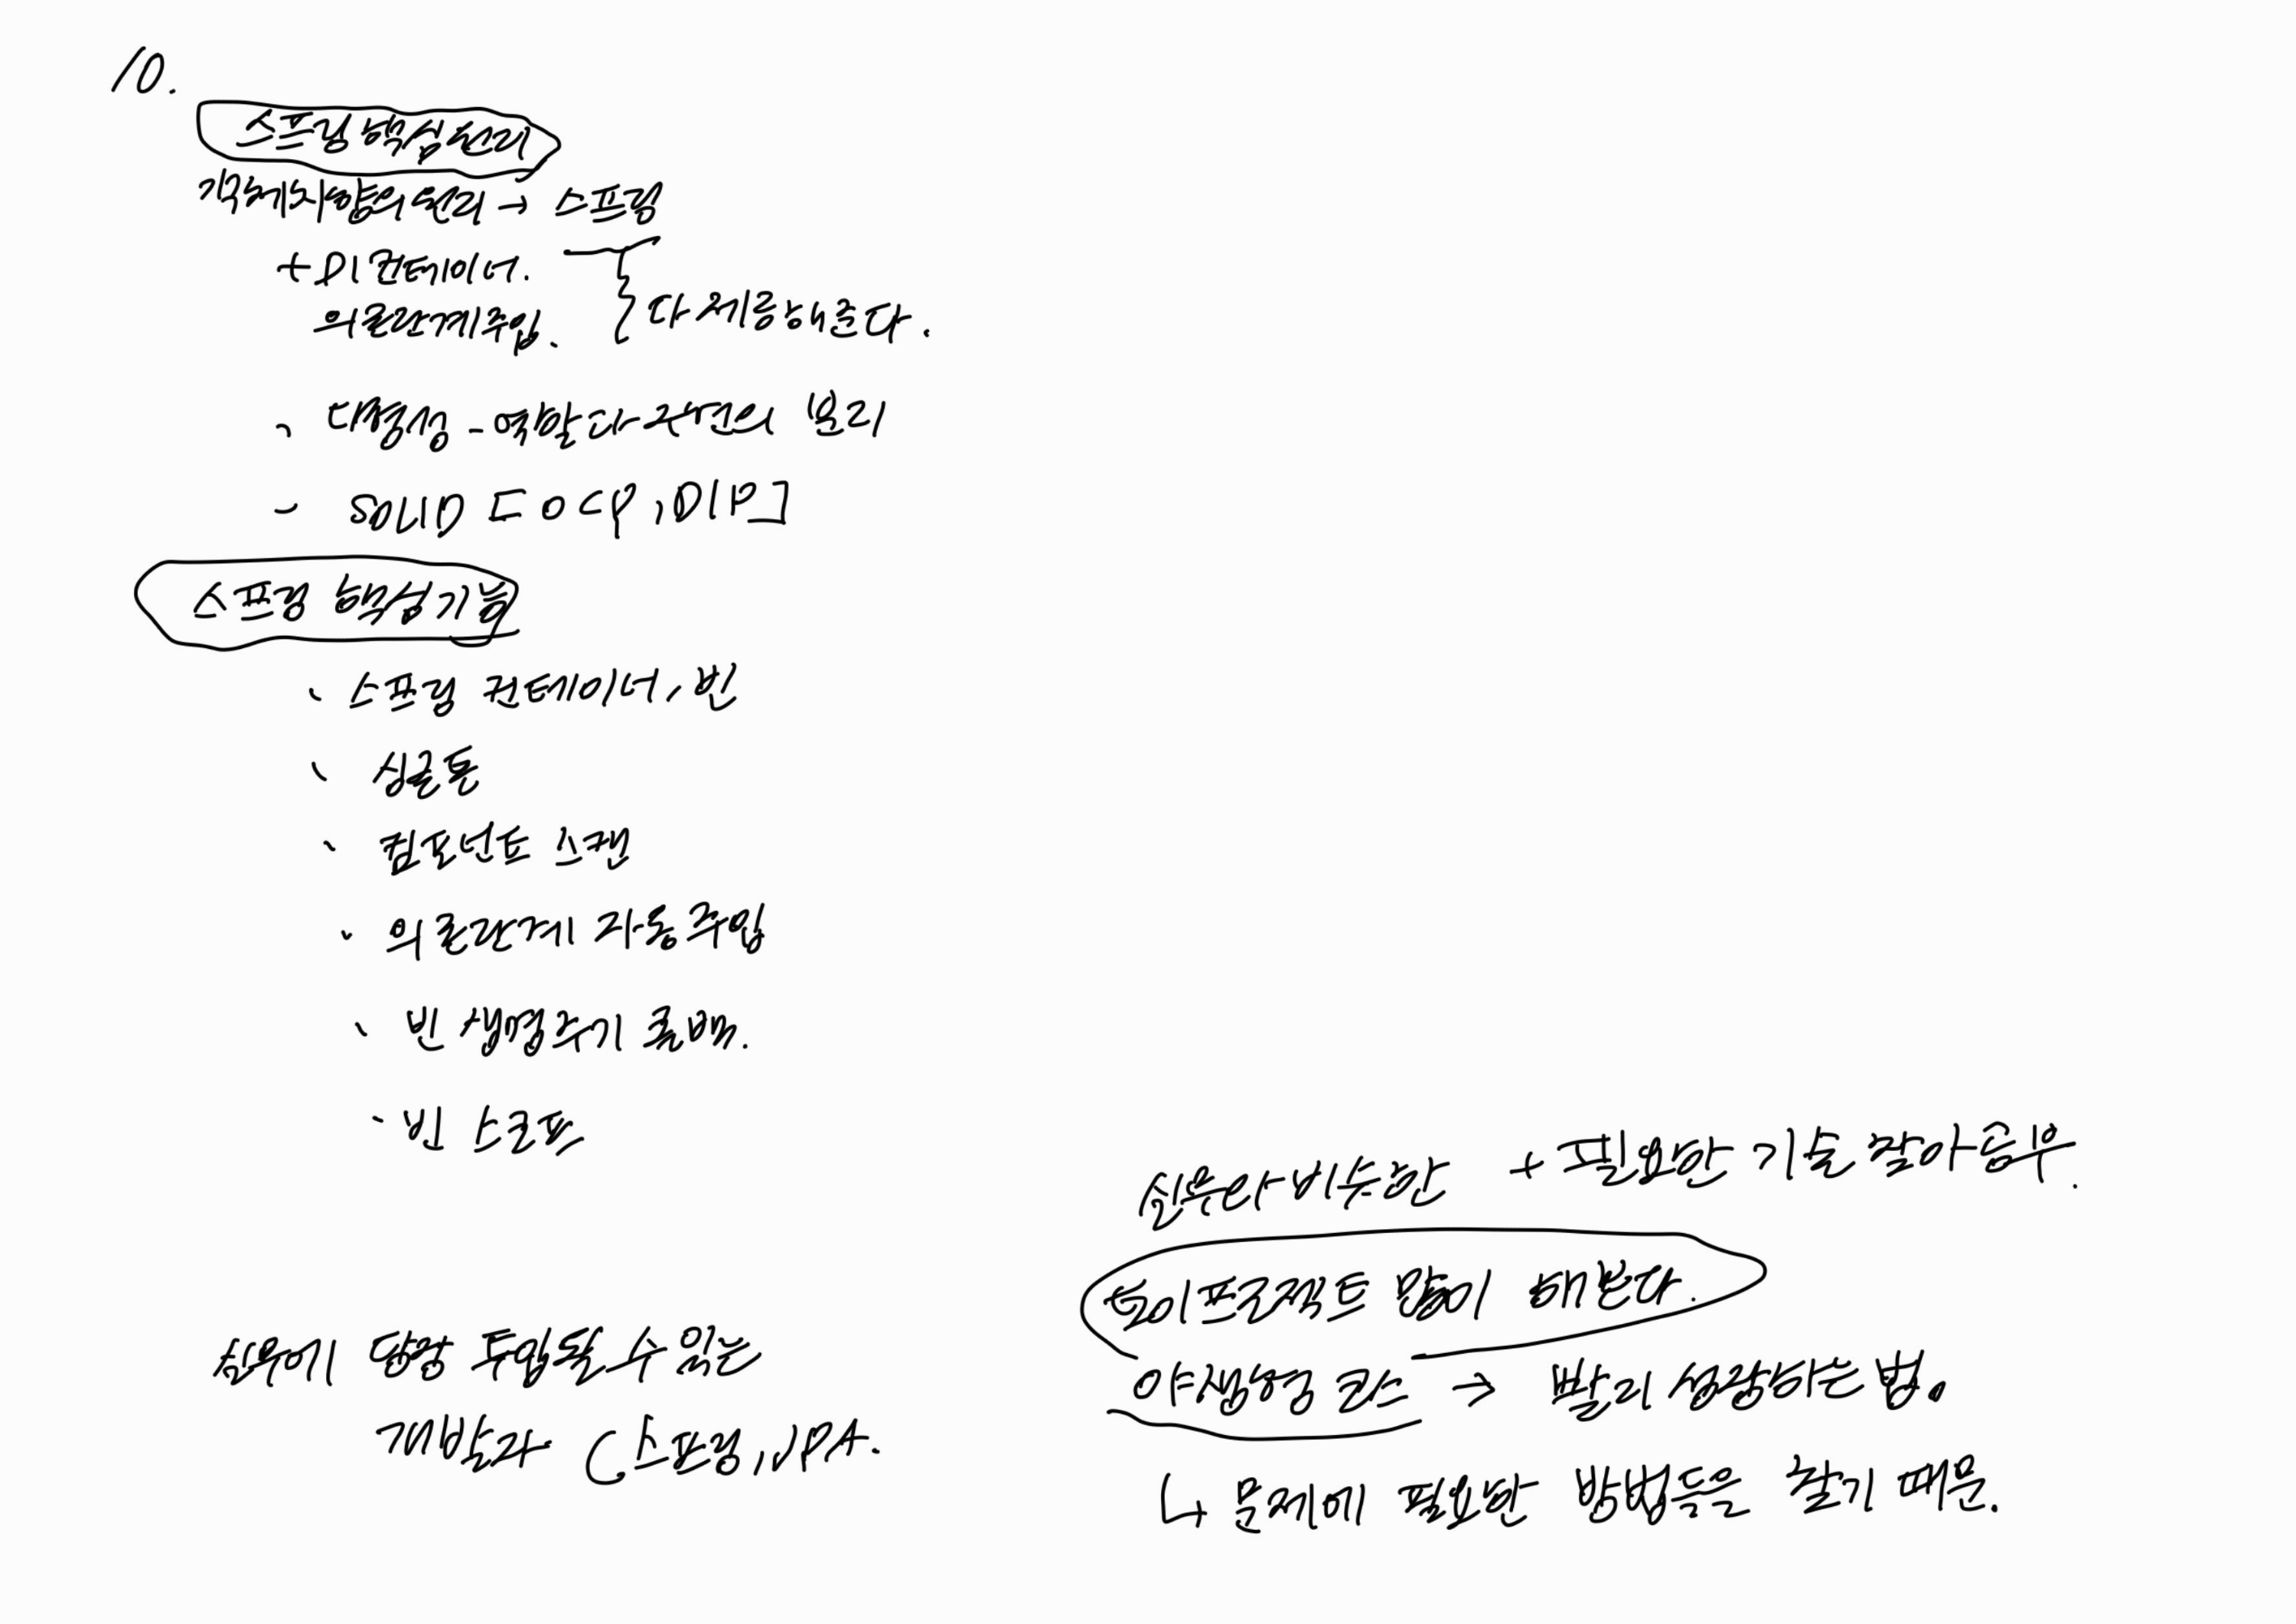 10.
스프링 핵심원리
객체지향의 원리 → 스프링
+ DI 컨테이너.
의존관계주입.
다 제공해준다.
다형성 - 역할과 구현의 분리
- SOLID [OCP, DIP]
스프링 핵심기능
· 스프링 컨테이너, 빈
· 싱글톤
· 컴포넌트 스캔
· 의존관계 자동주입
· 빈 생명주기 콜백.
· 빈 스코프
실무와 비슷한 + 필요한 기술 찾아 공부.
토이프로젝트 많이 해본다.
야생형 코스 → 빨리 성장하는 법.
↳ 문제에 필요한 방법들은 찾기 때문.
실무에 당장 투입될 수 있는
개발자 (스프링, JPA.